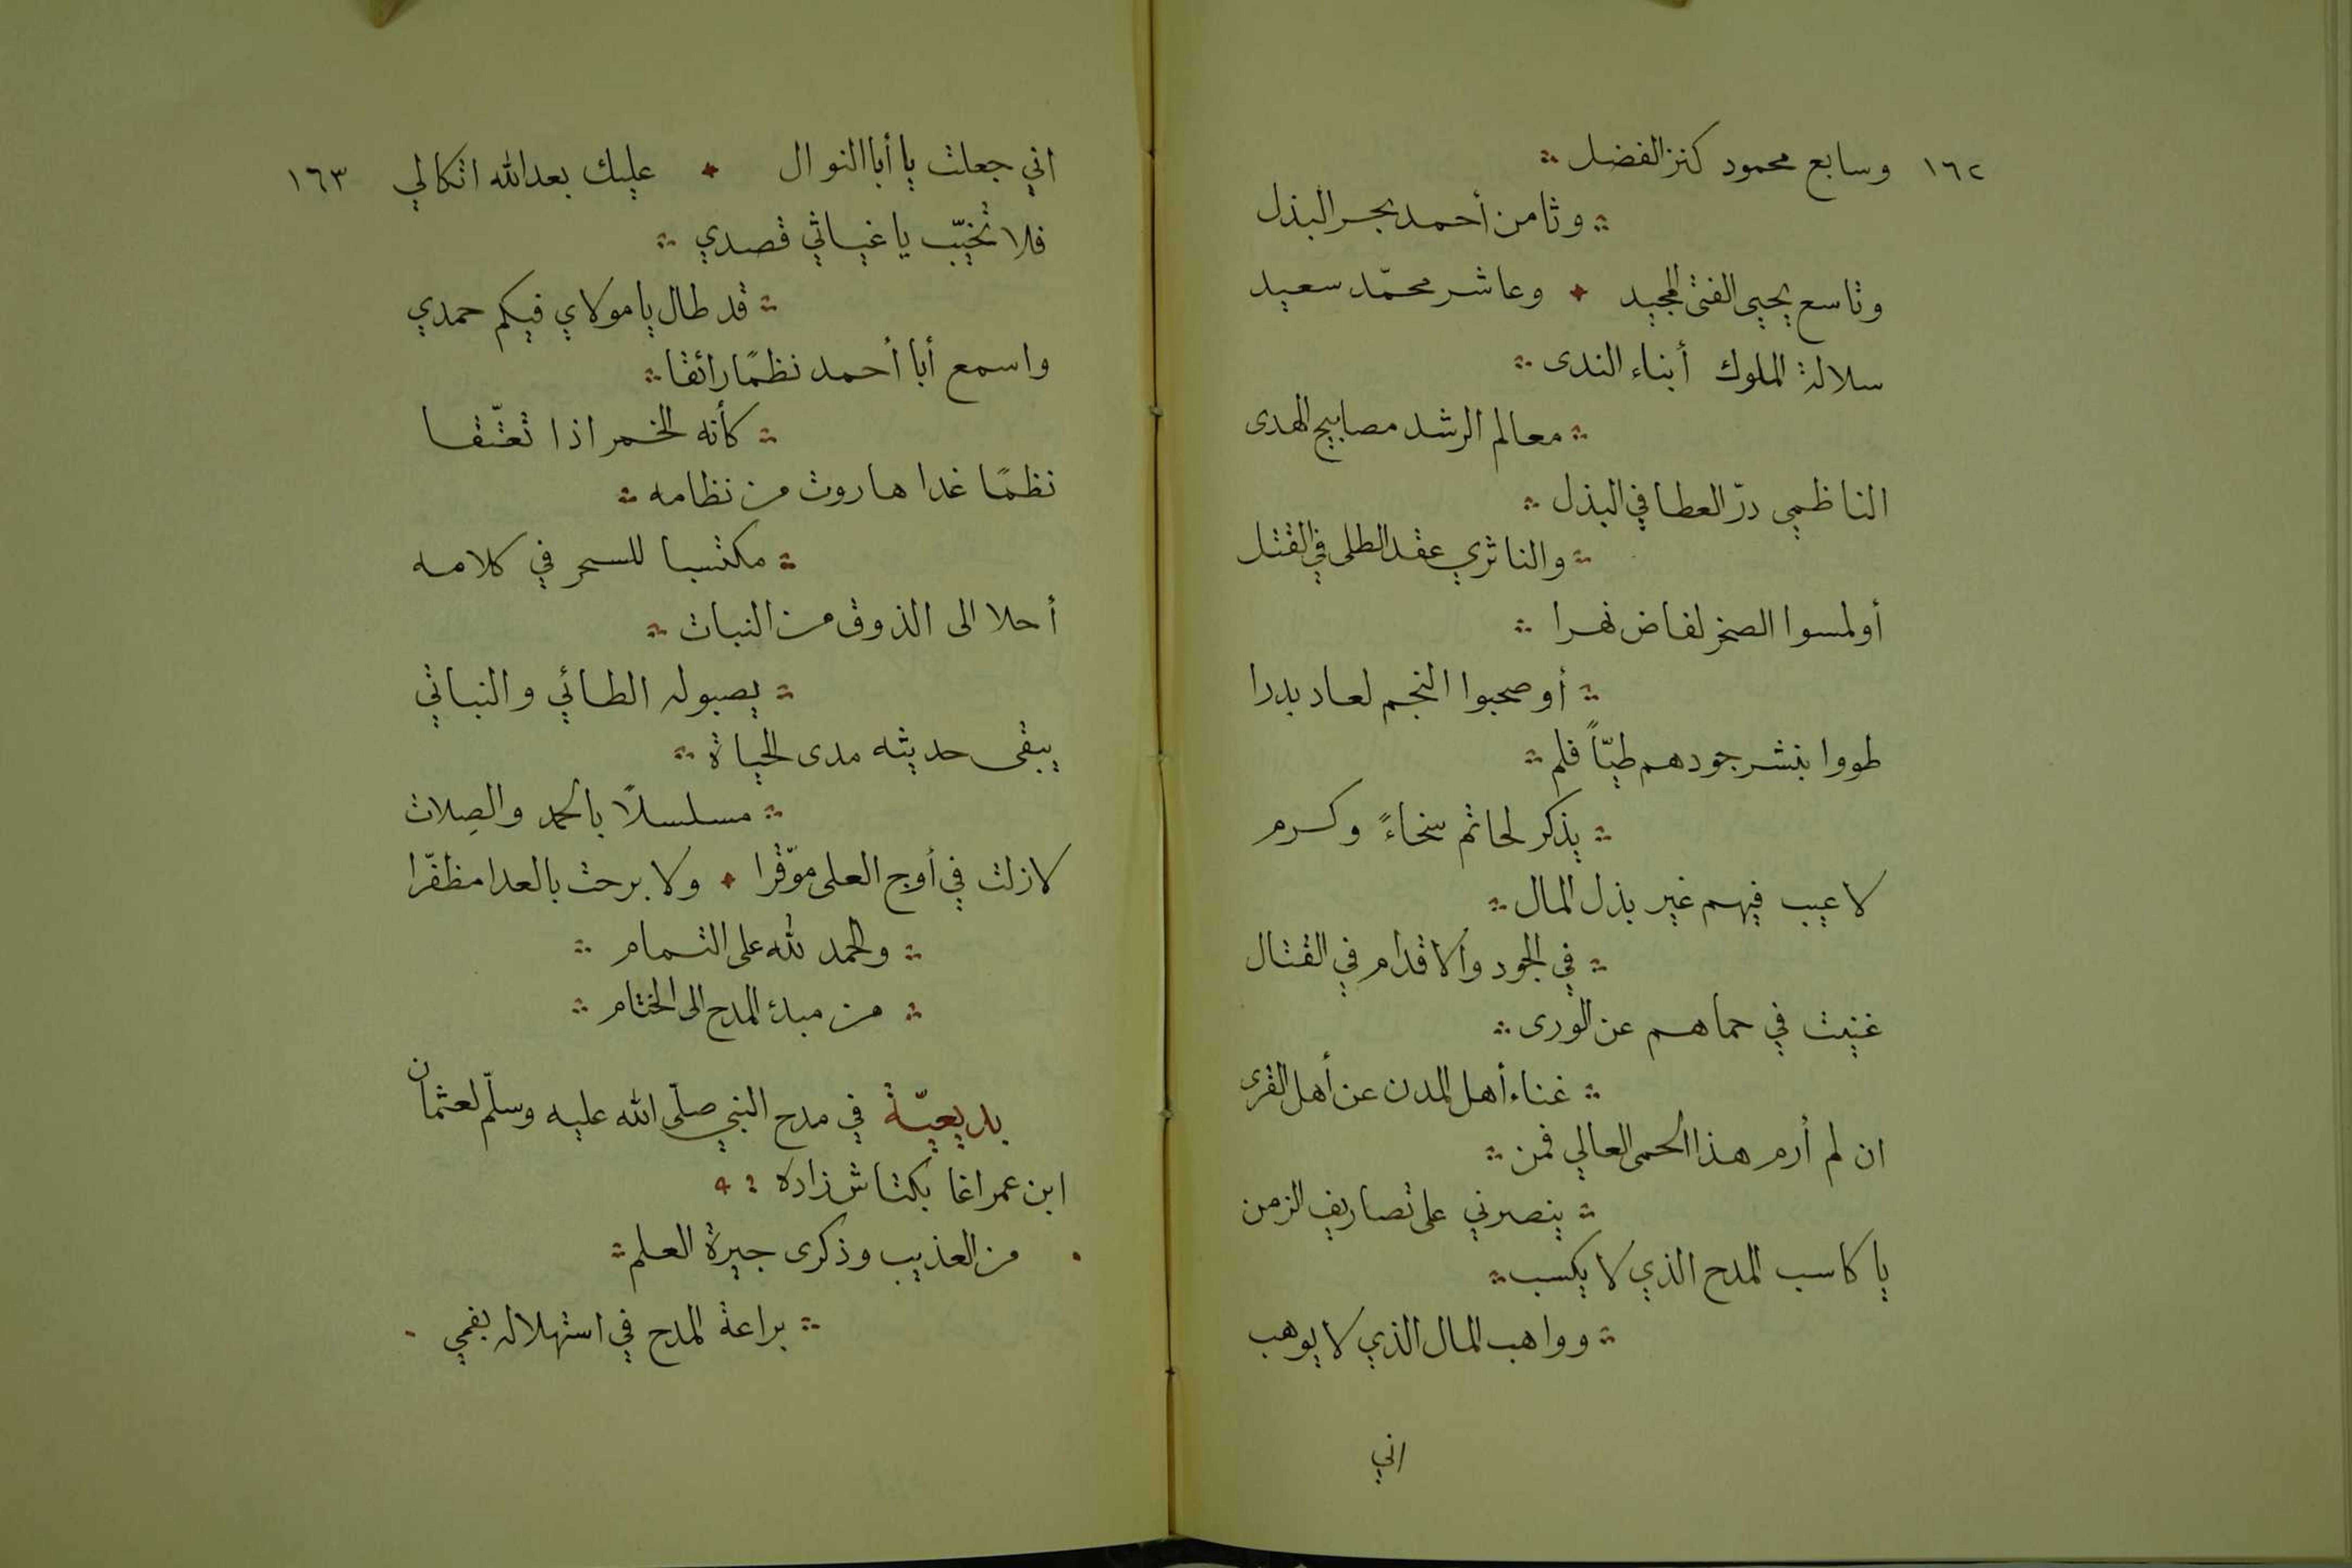 ١٦٢ وسابع محمود كنز الفضل
وثامن أحمد بحر البذل
وتاسع يحيى الفتى المجيد وعاشر محمّد سعيد
سلالة الملوك أبناء الندى
معالم الرشد مصابيح الهدى
الناظمي درّ العطا في البذل
والناثري عقد الطلى في القتل
أولمسوا الصخر لفاض نهرا
أو صحبوا النجم لعاد بدرا
طووا بنشر جودهم طيّاً فلم
يذكر لحاتم سخاءً وكرم
لا عيب فيهم غير بذل المال
في الجود والاقدام في القتال
غنيت في حماهم عن الورى
غناء أهل المدن عن أهل القرى
ان لم أرم هذا الحمى العالي فمن
ينصرني على تصاريف الزمن
يا كاسب المدح الذي لا يكسب
وواهب المال الذي لا يوهب
اني
اني جعلت يا أبا النوال عليك بعد الله اتكالي ١٦٣
فلا تخيّب يا غياثي قصدي
قد طال يا مولاي فيكم حمدي
واسمع أبا أحمد نظمًا رائقا
كأنه الخمر اذا تعتّقا
نظمًا غدا هاروت من نظامه
مكتسبا للسحر في كلامه
أحلا الى الذوق من النبات
يصبوله الطائي والنباتي
يبقى حديثه مدى الحياة
مسلسلاً بالحمد والصِلات
لا زلت في أوج العلى موّقرا ولا برحت بالعدا مظفّرا
والحمد لله على التمام
من مبدء المدح الى الختام
بديعيّة في مدح النبي صلّى الله عليه وسلّم لعثمان
ابن عمر اغا بكتاش زاده
من العذيب وذكرى جيرة العلم
براعة المدح في استهلاله بفمي